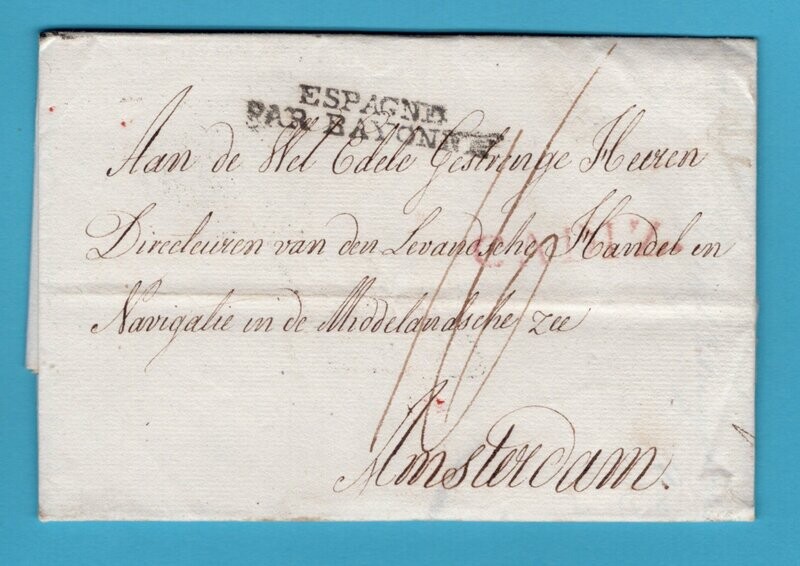 ESPAGNE
PAR BAYONNE
Aan de Wel Edele Gestrenge Heeren
Directeuren van den Levandsche Handel en
CADIZ.
Navigatie in de Middelandsche zee
Amsterdam.